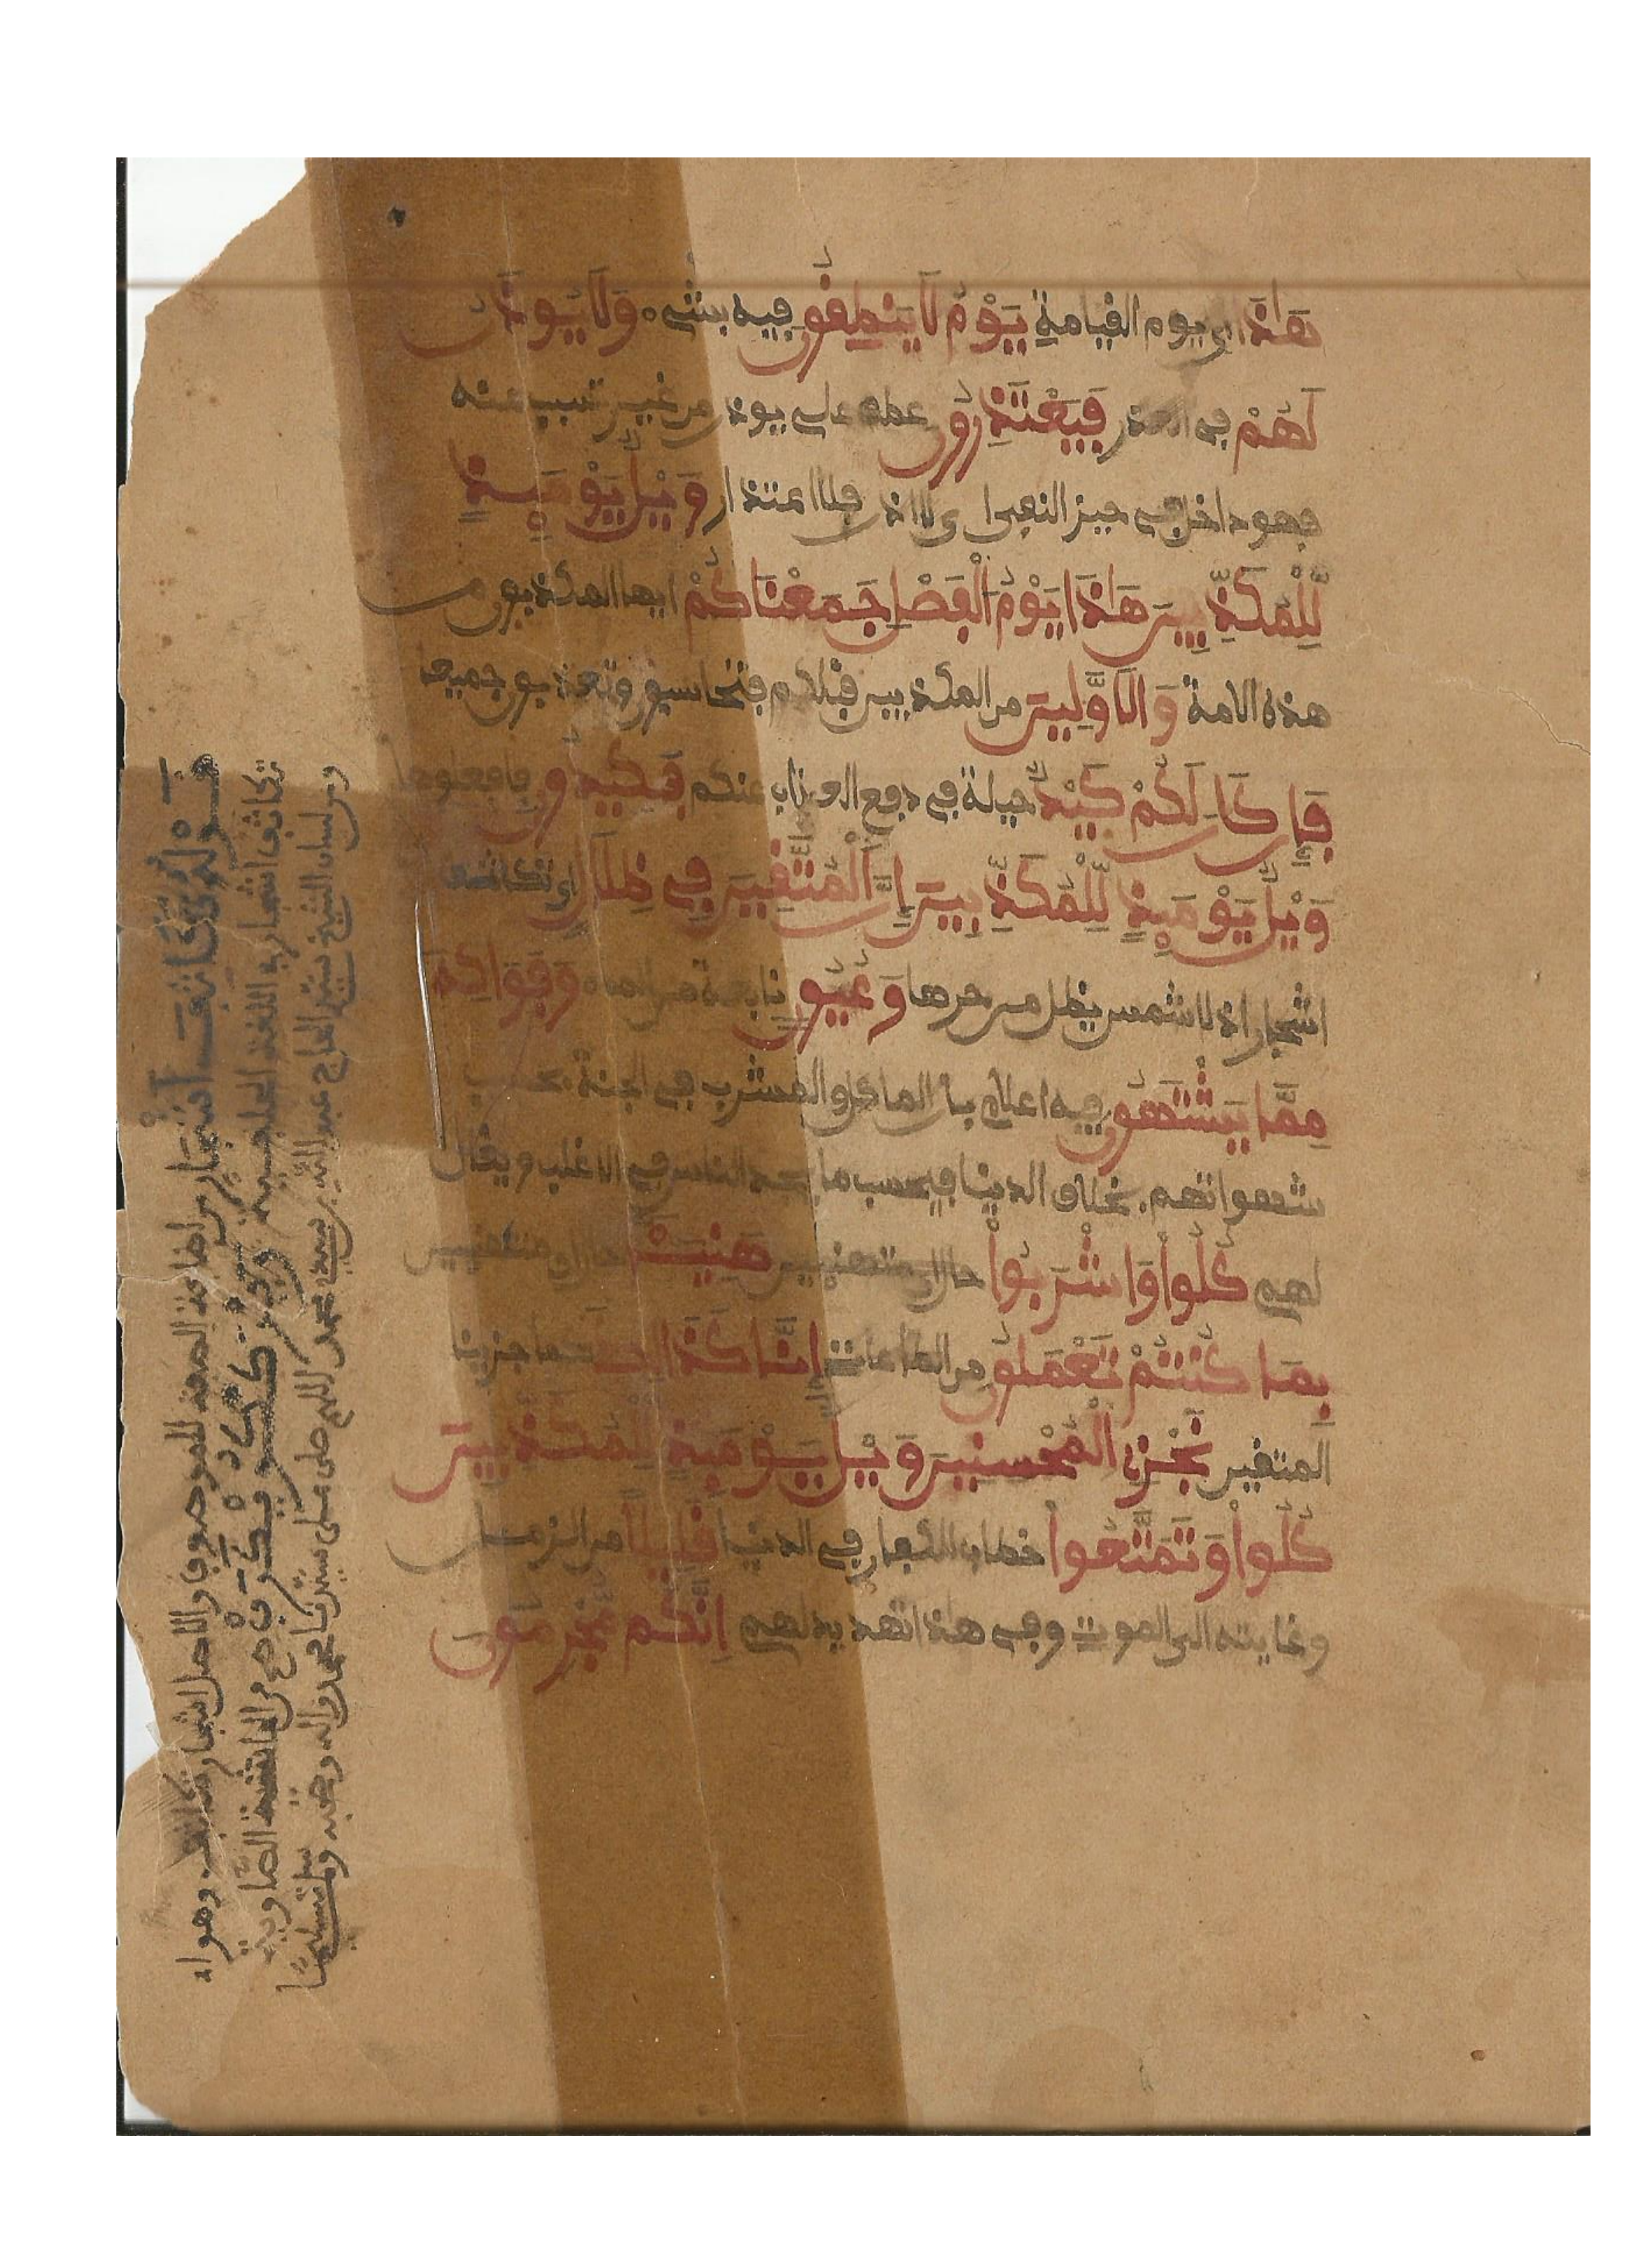 هَذَا اي يوم القيامة يَوْمُ لَا يَنطِقُونَ فيه بشيء وَلَا يُوذَنُ
لَهُمْ في العذر فَيَعْتَذِرُونَ عطف على يوذن من غير تسبب عنه
فهو داخل في حيز النفي اي لا اذن فلا اعتذار وَيْلٌ يَوْمَئِذٍ
لِّلْمُكَذِّبِينَ هَذَا يَوْمُ الْفَصْلِ جَمَعْنَاكُمْ ايها المكذبون من
هذه الامة وَالَاوَّلِينَ من المكذبين قبلكم فتحاسبون وتعذبون جميعا
فَإِن كَانَ لَكُمْ كَيْدٌ حيلة في دفع العذاب عنكم فَكِيدُونِ فافعلوها
وَيْلٌ يَوْمَئِذٍ لِّلْمُكَذِّبِينَ إِنَّ الْمُتَّقِينَ فِي ظِلَالٍ اي تكاثف
اشجار اذ لا شمس يظل من حرها وَعُيُونٍ نابعة من الماء وَفَوَاكِهَ
مِمَّا يَشْتَهُونَ فيه اعلام بان الماكل والمشرب في الجنة بحسب
شهواتهم بخلاف الدنيا فبحسب ما يجد الناس في الاغلب ويقال
لهم كُلُواْ وَاشْرَبُواْ حال اي متهنيين هَنِيئًا حال اي متهنيين
بِمَا كُنتُمْ تَعْمَلُونَ من الطاعات إِنَّا كَذَالِكَ كما جزينا
المتقين نَجْزِي الْمُحْسِنِينَ وَيْلٌ يَوْمَئِذٍ لِّلْمُكَذِّبِينَ
كُلُواْ وَتَمَتَّعُواْ خطاب للكفار في الدنيا قَلِيلًا من الزمان
وغايته الى الموت وفي هذا تهديد لهم إِنَّكُم مُّجْرِمُونَ
قوله اي تكاثف أشجار من اضافة الصفة للموصوف اذ الاصل اشجار متكاثفة وهو
من العاشية الصاوية
ومن لسان الشيخ سيد الحاج عبد الله بن سيد محمد اللهم صل على سيدنا محمد واله وصحبه وسلم تسليما